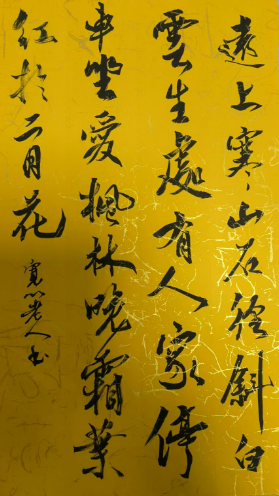 遠上寒山石徑斜白
雲生處有人家停
車坐愛楓林晚霜葉
紅於二月花
寬心老人書